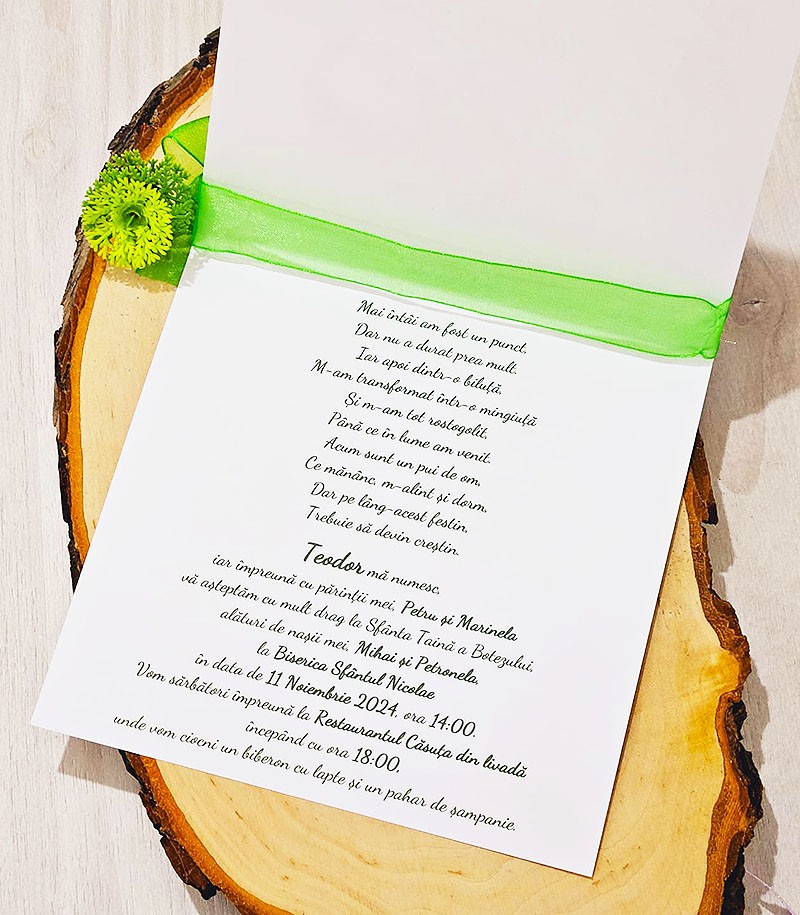 Mai întâi am fost un punct,
Dar nu a durat prea mult.
Iar apoi dintr-o biluță,
M-am transformat într-o mingiuță
Și m-am tot rostogolit,
Până ce în lume am venit.
Acum sunt un pui de om,
Ce mănânc, m-alint și dorm,
Dar pe lâng-acest festin,
Trebuie să devin creștin.
Teodor mă numesc,
iar împreună cu părinții mei, Petru și Marinela
vă așteptăm cu mult drag la Sfânta Taină a Botezului,
alături de nașii mei, Mihai și Petronela,
la Biserica Sfântul Nicolae
în data de 11 Noiembrie 2024, ora 14:00.
Vom sărbători împreună la Restaurantul Căsuța din livadă
începând cu ora 18:00,
unde vom ciocni un biberon cu lapte și un pahar de șampanie.